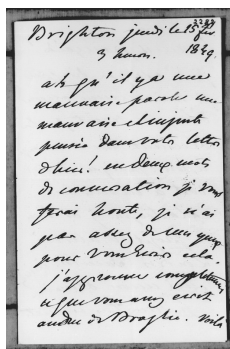 Brighton jeudi le 15 fév
3 heures. 1849.
ah qu'il y a une
mauvaise parole une
mauvaise et injuste
pensée dans votre lettre
d'hier! en deux mots
de conversation je vous
ferais honte, je n'ai
pas assez de
pour vous écrire cela.
J'approuve complètement
ce que vous avez écrit
au duc de Broglie. voilà